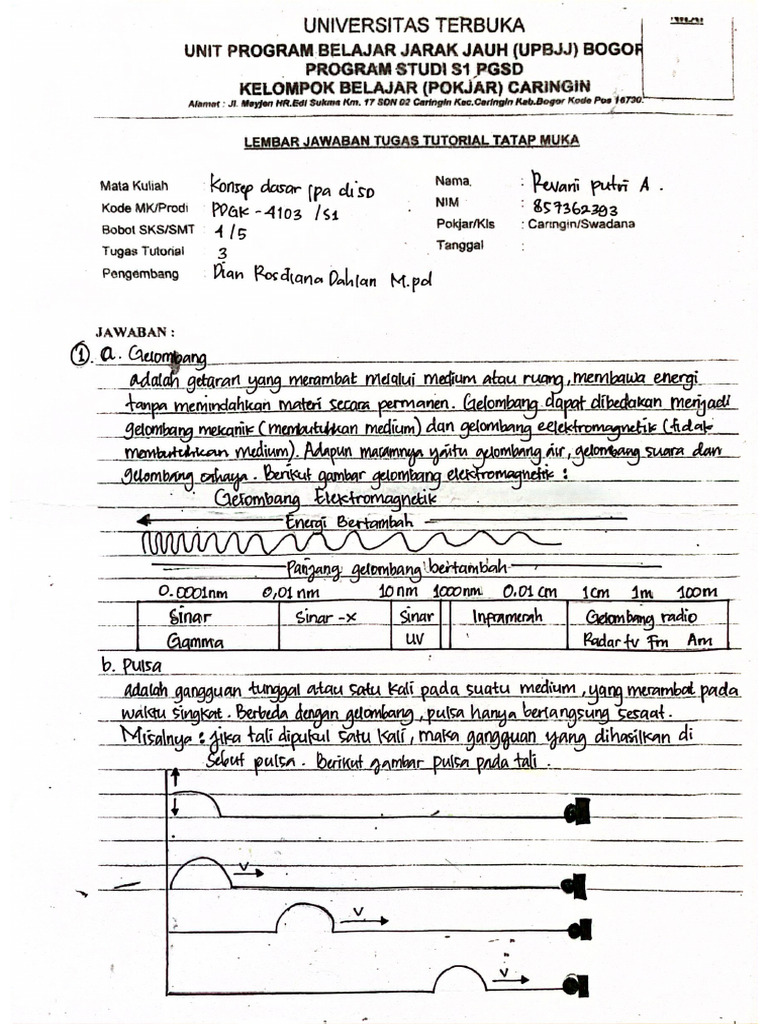 UNIVERSITAS TERBUKA
UNIT PROGRAM BELAJAR JARAK JAUH (UPBJJ) BOGOR
PROGRAM STUDI S1 PGSD
KELOMPOK BELAJAR (POKJAR) CARINGIN
Alamat : Jl. Mayjen HR.Edi Sukma Km. 17 SDN 02 Caringin Kec.Caringin Kab.Bogor Kode Pos 16730.
LEMBAR JAWABAN TUGAS TUTORIAL TATAP MUKA
Mata Kuliah : Konsep dasar ipa di SD
Kode MK/Prodi : PDGK - 4103 / S1
Bobot SKS/SMT : 4/5
Tugas Tutorial : 3
Pengembang : Dian Rosdiana Dahlan M.pd
Nama : Revani putri A.
NIM : 857362393
Pokjar/Kls : Caringin/Swadana
Tanggal :
JAWABAN :
1. a. Gelombang
adalah getaran yang merambat melalui medium atau ruang, membawa energi
tanpa memindahkan materi secara permanen. Gelombang dapat dibedakan menjadi
gelombang mekanik (membutuhkan medium) dan gelombang eelektromagnetik (tidak
membutuhkan medium). Adapun macamnya yaitu gelombang air, gelombang suara dan
gelombang cahaya. Berikut gambar gelombang elektromagnetik :
Gelombang Elektromagnetik
Energi Bertambah
Panjang gelombang bertambah
0.0001nm 0,01 nm 10 nm 1000 nm 0.01 cm 1cm 1m 100m
Sinar Sinar-x Sinar Inframerah Gelombang radio
Gamma UV Radar tv Fm Am
b. Pulsa
adalah gangguan tunggal atau satu kali pada suatu medium, yang merambat pada
waktu singkat. Berbeda dengan gelombang, pulsa hanya berlangsung sesaat.
Misalnya : jika tali dipukul satu kali, maka gangguan yang dihasilkan di
sebut pulsa. Berikut gambar pulsa pada tali.
V
V
V